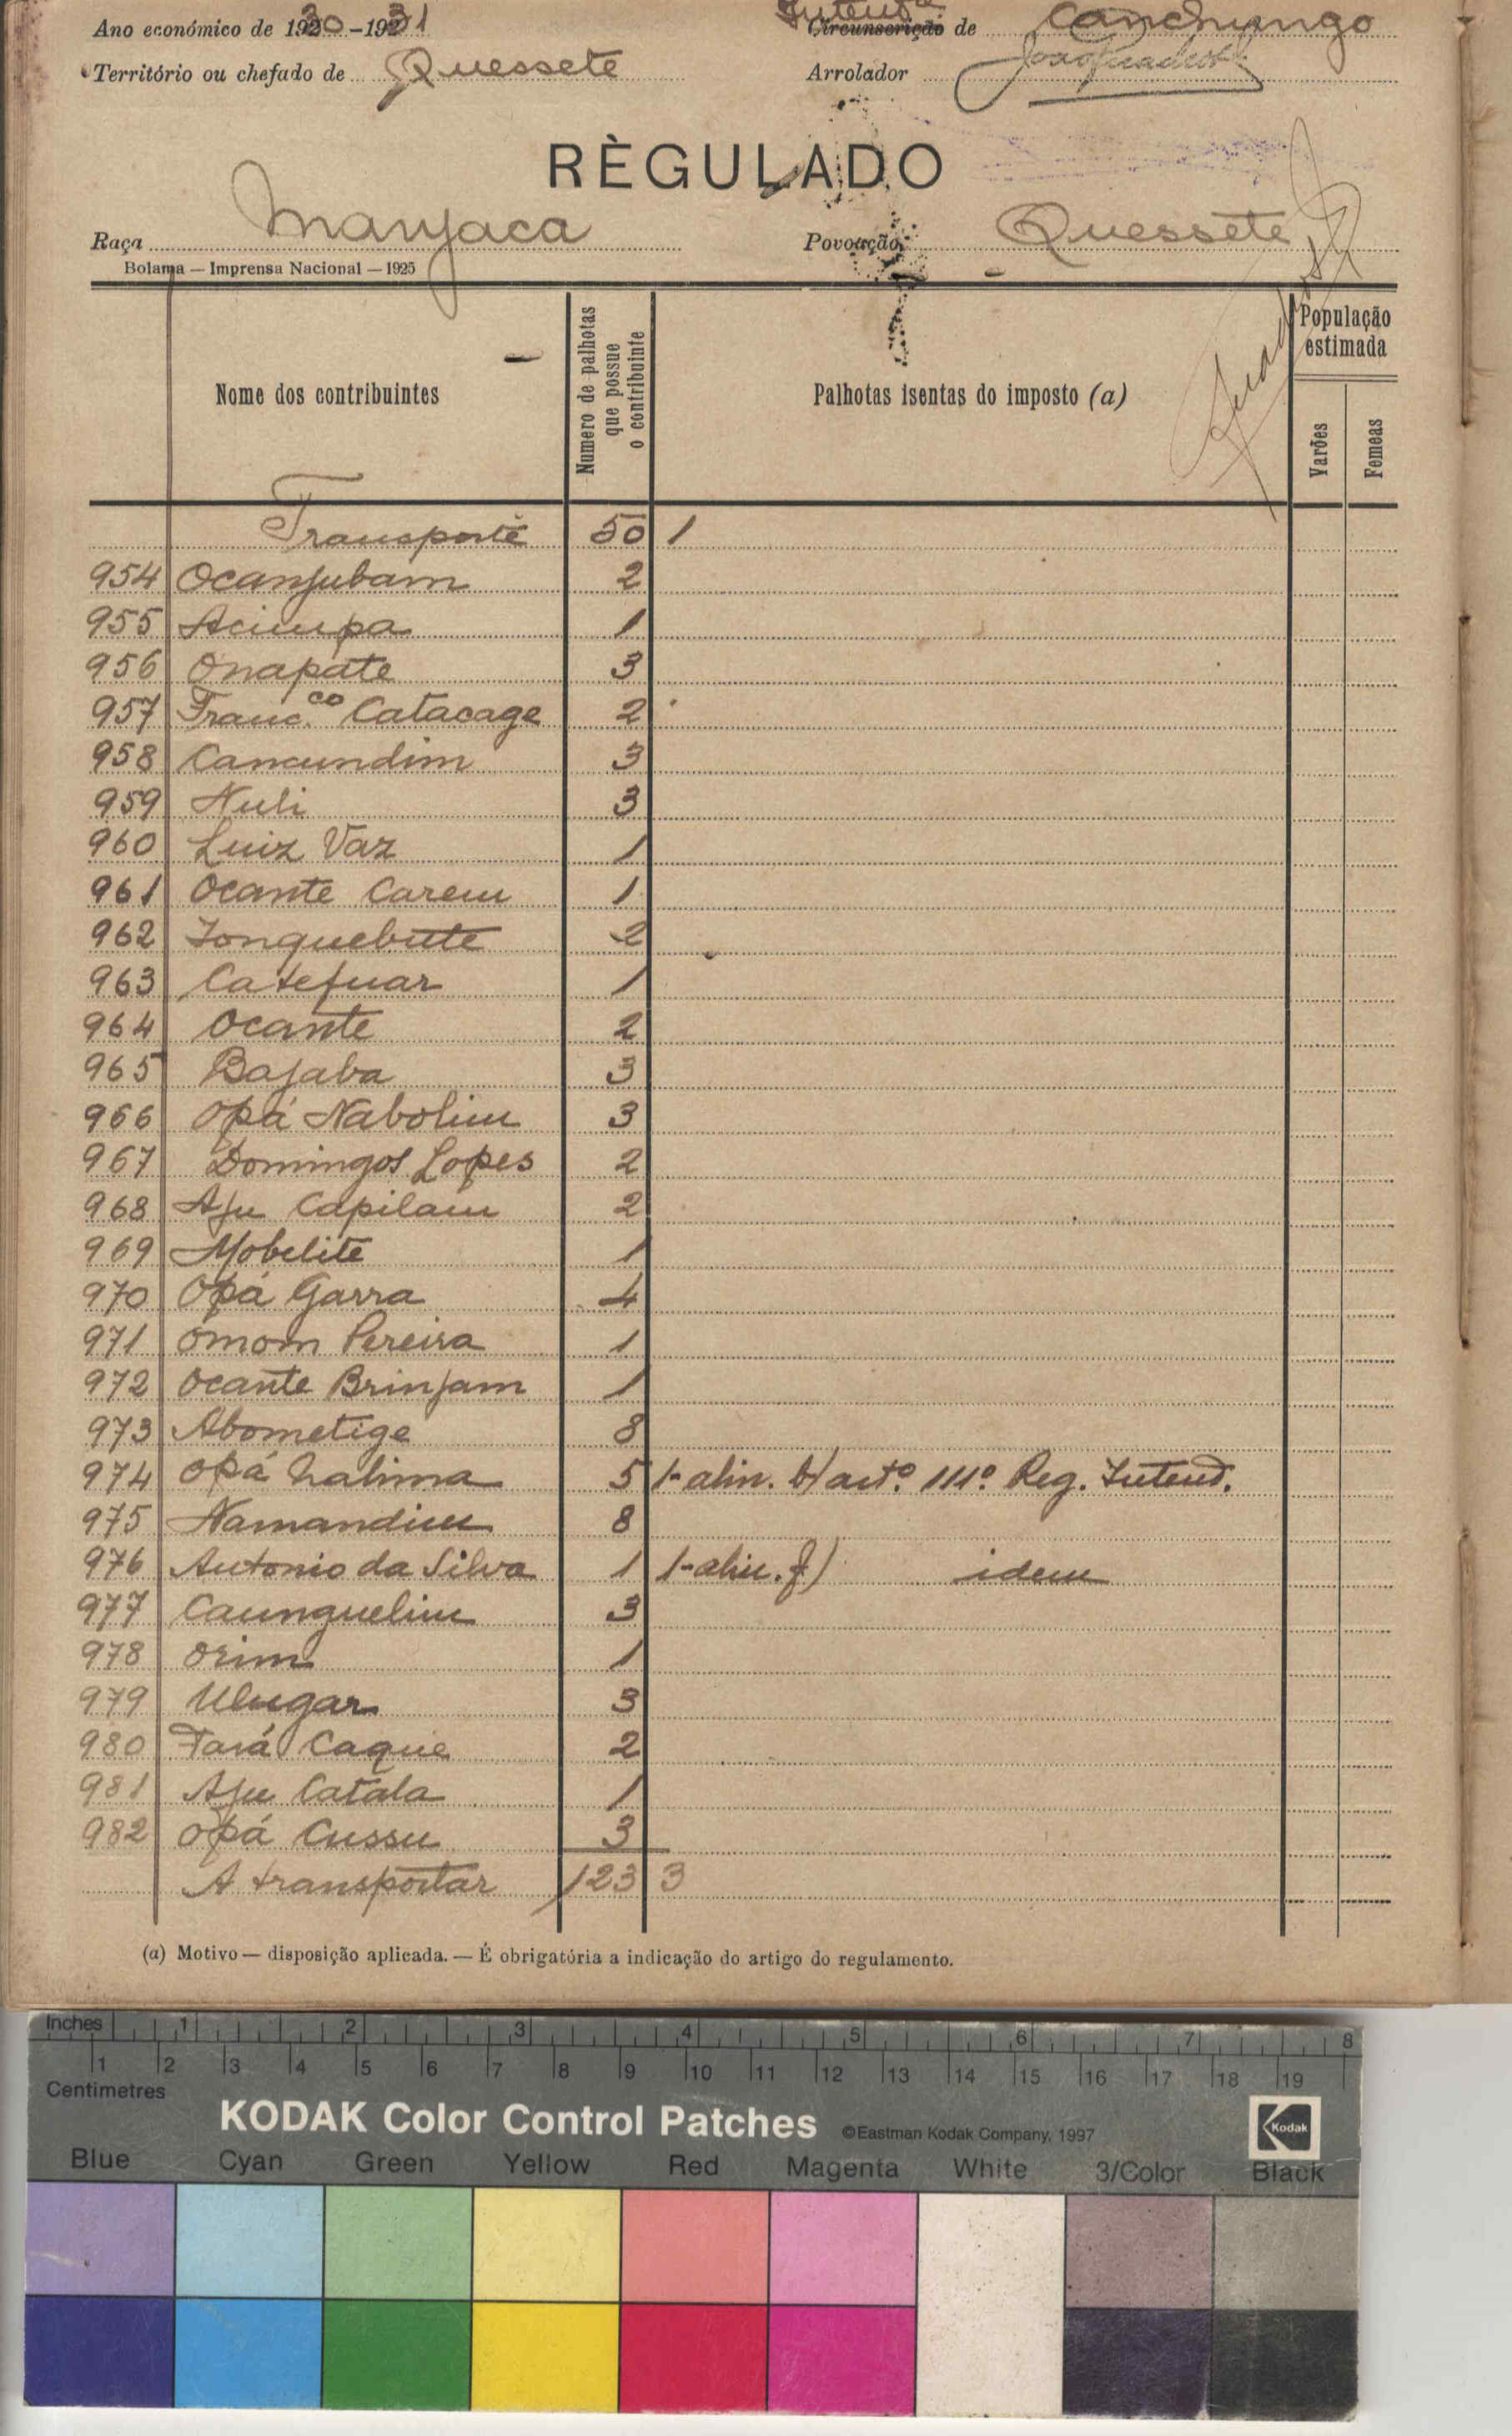 Ano económico de 1930-1931 Intend.ª de Canchungo
Território ou chefado de Quessete Arrolador
RÈGULADO
Raça Manjaca Povoação Quessete
Bolama — Imprensa Nacional — 1925
Nome dos contribuintes
Numero de palhotas
que possue
o contribuinte
Palhotas isentas do imposto (a)
População
estimada
Varões
Femeas
Transporte 50 1
954 Ocanjubam 2
955 Acimpa 1
956 Onapate 3
957 Franc.co Catacage 2
958 Cancundim 3
959 Nuli 3
960 Luiz Vaz 1
961 Ocante Carem 1
962 Jonquebute 2
963 Catefuar 1
964 Ocante 2
965 Bajaba 3
966 Opá Nabolim 3
967 Domingos Lopes 2
968 Aju Capilam 2
969 Mobelite 1
970 Opá Garra 4
971 Omom Pereira 1
972 Ocante Brinjam 1
973 Abometige 8
974 Opá Nalima 5 1-alin. b) art.º 111.º Reg. Intend.
975 Namandim 8
976 Antonio da Silva 1 1-alin. f) idem
977 Caunguelim 3
978 Orim 1
979 Ulugar 3
980 Fará Caque 2
981 Aju Catala 1
982 Opá Cussu 3
A transportar 123 3
(a) Motivo — disposição aplicada. — É obrigatória a indicação do artigo do regulamento.
Inches 1 2 3 4 5 6 7 8
1 2 3 4 5 6 7 8 9 10 11 12 13 14 15 16 17 18 19
Centimetres
KODAK Color Control Patches ©Eastman Kodak Company, 1997 Kodak
Blue Cyan Green Yellow Red Magenta White 3/Color Black